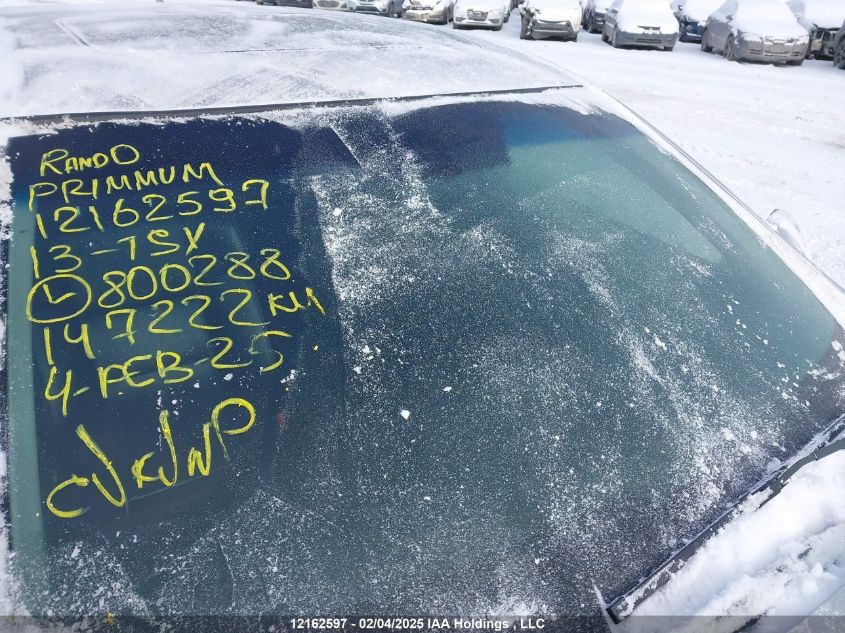 RANDO
PRIMMUM
12162597
13-TSX
L 800288
147222 KM
4-FEB-25
12162597 - 02/04/2025 IAA Holdings , LLC